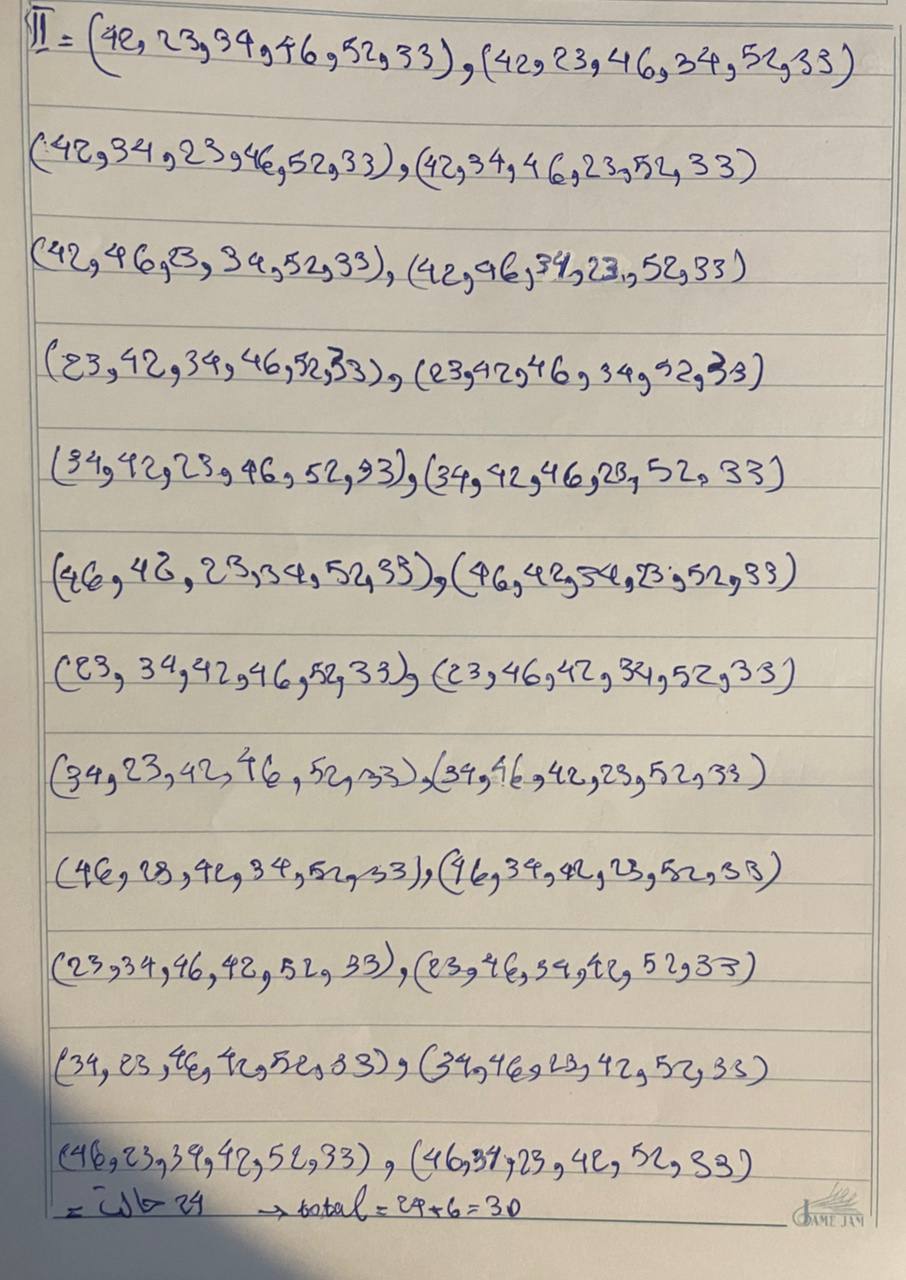 II = (42, 23, 34, 46, 52, 33), (42, 23, 46, 34, 52, 33)
(42, 34, 23, 46, 52, 33), (42, 34, 46, 23, 52, 33)
(42, 46, 23, 34, 52, 33), (42, 46, 34, 23, 52, 33)
(23, 42, 34, 46, 52, 33), (23, 42, 46, 34, 52, 33)
(34, 42, 23, 46, 52, 33), (34, 42, 46, 23, 52, 33)
(46, 42, 23, 34, 52, 33), (46, 42, 34, 23, 52, 33)
(23, 34, 42, 46, 52, 33), (23, 46, 42, 34, 52, 33)
(34, 23, 42, 46, 52, 33), (34, 46, 42, 23, 52, 33)
(46, 23, 42, 34, 52, 33), (46, 34, 42, 23, 52, 33)
(23, 34, 46, 42, 52, 33), (23, 46, 34, 42, 52, 33)
(34, 23, 46, 42, 52, 33), (34, 46, 23, 42, 52, 33)
(46, 23, 34, 42, 52, 33), (46, 34, 23, 42, 52, 33)
= حالت 24 → total = 24+6 = 30
JAME JAM